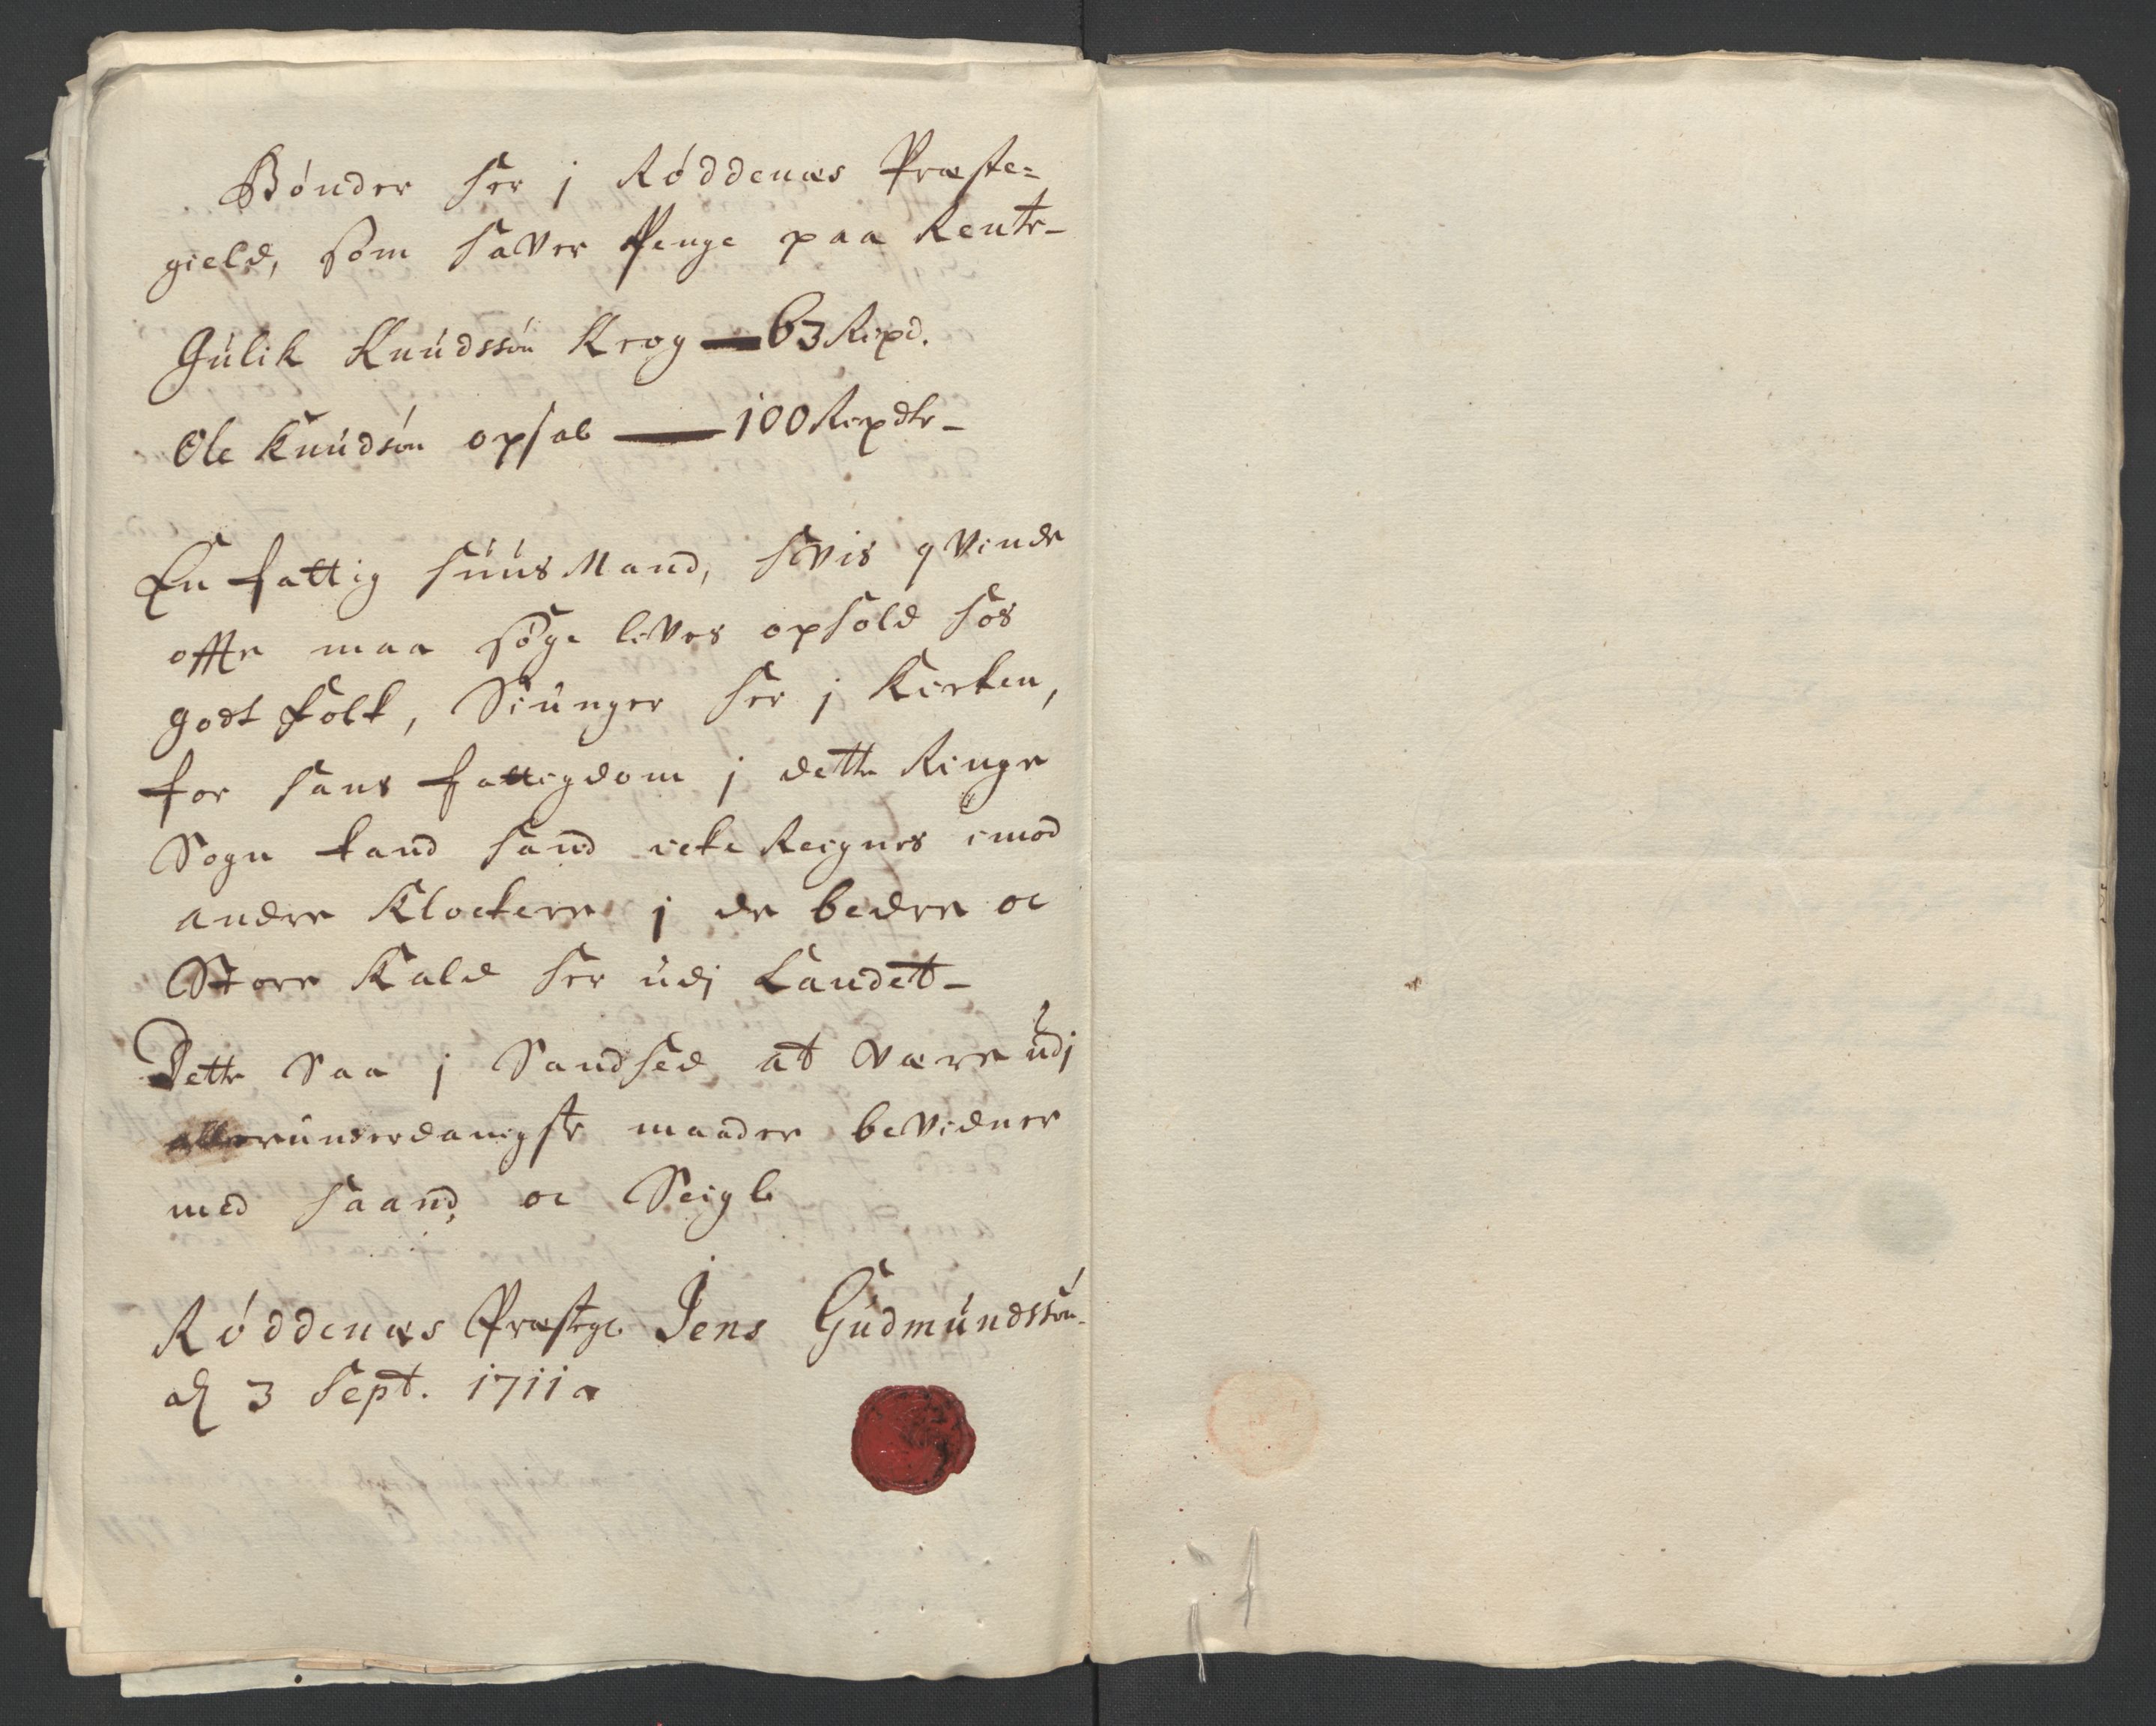 Bönder her j Röddenæs Præste=
gield, som haver Penge paa Rente-
Gulik Knudssön Krog — 63 Rixd.
Ole Knudsön opsal — 100 Rixdlr-
En fattig huusMand, hvis qvinde
offte maa söge lives ophold hos
godt folk, Siunger her j Kirken,
for hans fattigdom j dette Ringe
Sogn kand hand icke Reignes imod
andre Klockere j de bedre oc
Store Kald her udj Landet-
Dette Saa j Sandhed at være udj
allerunderdanigste maader bevidner
med haand oc Seigl
Röddenæs Præstegl Jens Gudmundssön.
d 3 Sept. 1711